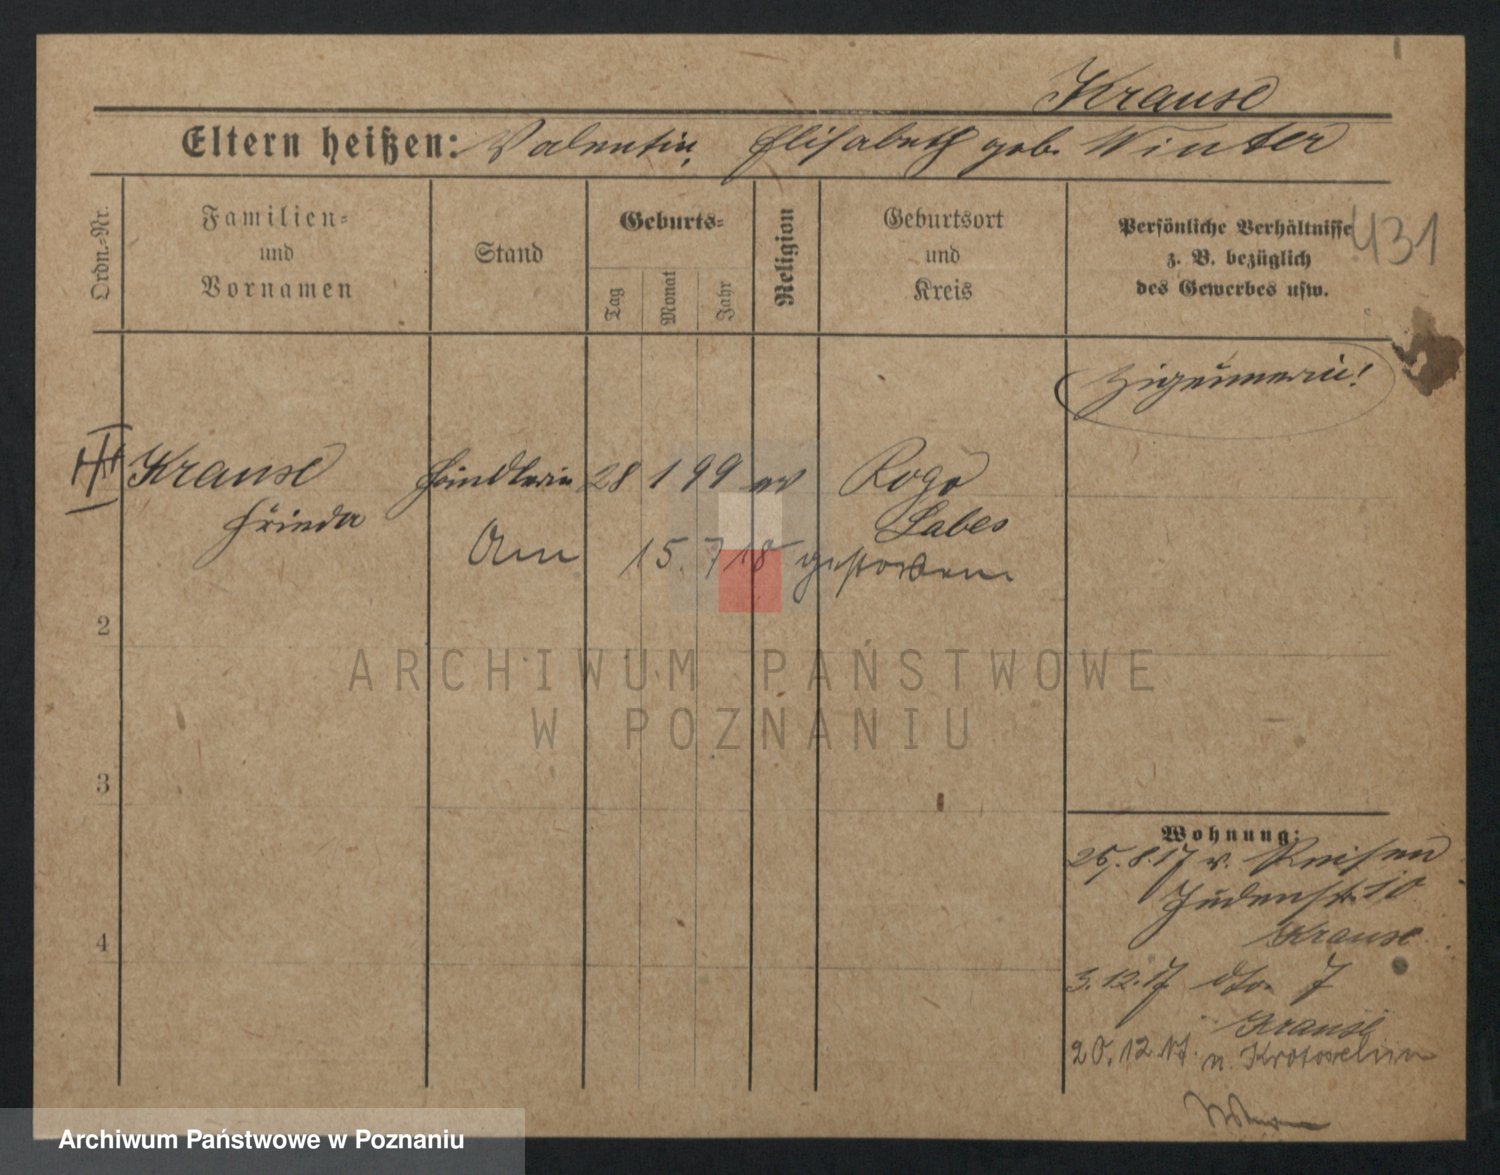 Krause
Eltern heißen: Valentin, Elisabeth geb. Winter
Ordn.=Nr.
Familien=
und
Vornamen
Stand
Geburts=
Tag
Monat
Jahr
Religion
Geburtsort
und
Kreis
Persönliche Verhältnisse
z. B. bezüglich
des Gewerbes usw.
431
Zigeunerin!
Krause Händlerin 28 1 99 ev Rogo
Frieda Labes
Am 15. 7 18 gestorben
2
ARCHIWUM PAŃSTWOWE
W POZNANIU
3
Wohnung:
25.8.17 v. Reisen
Judenstr. 10
Krause
4
3.12.17 dto 7
Krause
20.12.17. n. Krotoschin
Archiwum Państwowe w Poznaniu